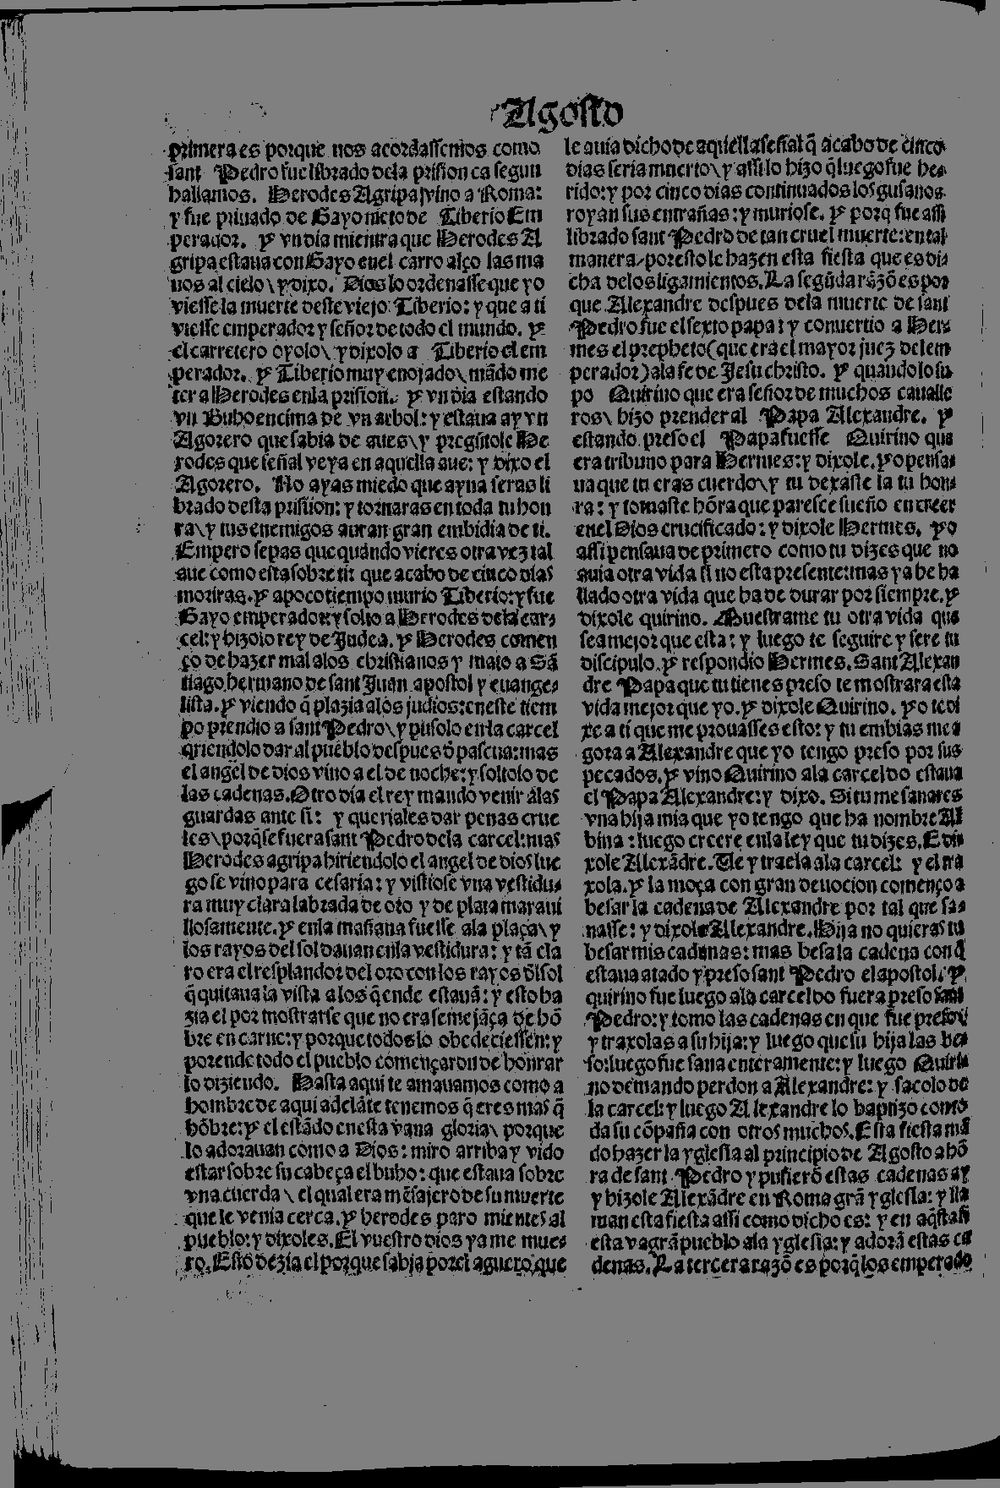 Agosto
primera es porque nos acordassemos como
sant Pedro fue librado dela prision ca segun
hallamos. Herodes Agripa vino a Roma:
y fue priuado de Gayo nieto de Tiberio Em
perador. Y vn dia mientra que Herodes A
gripa estaua con Gayo enel carro alço las ma
nos al cielo \ y dixo. Dios lo ordenasse que yo
viesse la muerte deste viejo Tiberio: y que a ti
viesse emperador y señor de todo el mundo. Y
el carretero oyolo \ y dixolo a Tiberio el em
perador. Y Tiberio muy enojado \ mãdo me
ter a Herodes enla prision. Y vn dia estando
vn Buho encima de vn arbol: y estaua ay vn
Agorero que sabia de aues \ y pregũtole He
rodes que señal veya en aquella aue: y dixo el
Agorero. No ayas miedo que ayna seras li
brado desta prision: y tornaras en toda tu hon
ra \ y tus enemigos auran gran embidia de ti.
Empero sepas que quando vieres otra vez tal
aue como esta sobre ti: que acabo de cinco dias
moriras. Y apoco tiempo murio Tiberio: y fue
Gayo emperador: y solto a Herodes dela car-
cel: y hizolo rey de Judea. Y Herodes comen
ço de hazer mal alos christianos y mato a Sã
tiago hermano de sant Juan apostol y euange-
lista. Y viendo q̃ plazia alos judios: eneste tiem
po prendio a sant Pedro \ y pusolo enla carcel
qriendolo dar al pueblo despues d̃ pascua: mas
el angel de dios vino a el de noche: y soltolo de
las cadenas. Otro dia el rey mando venir alas
guardas ante si: y queriales dar penas crue
les \ porq̃ se fuera sant Pedro dela carcel: mas
Herodes agripa hiriendolo el angel de dios lue
go se vino para cesaria: y vistiose vna vestidu-
ra muy clara labrada de oro y de plata maraui
llosamente. Y enla mañana fuesse ala plaça \ y
los rayos del sol dauan enla vestidura: y tã cla
ro era el resplandor del oro con los rayos d̃l sol
q̃ quitaua la vista a los q̃ ende estauã: y esto ha
zia el por mostrarse que no era semejãça de hõ
bre en carne: y porque todos lo obedeciessen: y
porende todo el pueblo començaron de honrar
lo diziendo. Hasta aqui te amauamos como a
hombre de aqui adelãte tenemos q̃ eres mas q̃
hõbre: Y el estãdo enesta vana gloria \ porque
lo adorauan como a Dios: miro arriba y vido
estar sobre su cabeça el buho: que estaua sobre
vna cuerda \ el qual era mẽsajero de su muerte
que le venia cerca. Y herodes paro mientes al
pueblo: y dixoles. El vuestro dios ya me mue-
ro. Esto dezia el porque sabia por el aguero que
le auia dicho de aquella señal q̃ acabo de cinco
dias seria muerto \ y assi lo hizo q̃ luego fue he-
rido: y por cinco dias continuados los gusanos
royan sus entrañas: y muriose. Y porq fue assi
librado sant Pedro de tan cruel muerte: en tal
manera / por esto le hazen esta fiesta que es di-
cha delos ligamientos. La segũda razõ es por
que Alexandre despues dela muerte de sant
Pedro fue el sexto papa: y conuertio a Her-
mes el prepheto (que era el mayor juez del em
perador) ala fe de Jesu christo. Y quando lo su
po Quirino que era señor de muchos caualle
ros \ hizo prender al Papa Alexandre. Y
estando preso el Papa fuesse Quirino que
era tribuno para Hermes: y dixole. Yo pensa-
ua que tu eras cuerdo \ y tu dexaste la tu hon-
ra: y tomaste hõra que paresce sueño en creer
enel Dios crucificado: y dixole Hermes. Yo
assi pensaua de primero como tu dizes que no
auia otra vida si no esta presente: mas ya he ha
llado otra vida que ha de durar por siempre. Y
dixole quirino. Muestrame tu otra vida que
sea mejor que esta: y luego te seguire y sere tu
discipulo. Y respondio Hermes. Sant Alexan
dre Papa que tu tienes preso te mostrara esta
vida mejor que yo. Y dixole Quirino. Yo te di
xe a ti que me prouasses esto: y tu embias me a
gora a Alexandre que yo tengo preso por sus
pecados. Y vino Quirino ala carcel do estaua
el Papa Alexandre: y dixo. Si tu me sanares
vna hija mia que yo tengo que ha nombre Al
bina: luego creere enla ley que tu dizes. E di-
xole Alexãdre. Ve y traela ala carcel: y el tra
xola. Y la moça con gran deuocion començo a
besar la cadena de Alexandre por tal que sa-
nasse: y dixole Alexandre. Hija no quieras tu
besar mis cadenas: mas besa la cadena con q̃
estaua atado y preso sant Pedro el apostol. Y
quirino fue luego ala carcel do fuera preso sant
Pedro: y tomo las cadenas en que fue preso
y traxolas a su hija: y luego que su hija las be-
so: luego fue sana enteramente: y luego Quiri-
no demando perdon a Alexandre: y sacolo de
la carcel: y luego Alexandre lo baptizo como
da su cõpañia con otros muchos. Esta fiesta mã
do hazer la yglesia al principio de Agosto a hõ
ra de sant Pedro y pusierõ estas cadenas ay
y hizole Alexãdre en Roma grã yglesia: y lla
man esta fiesta assi como dicho es: y en aq̃sta fi
esta va grã pueblo ala yglesia: y adorã estas ca
denas. La tercera razõ es porq̃ los emperado